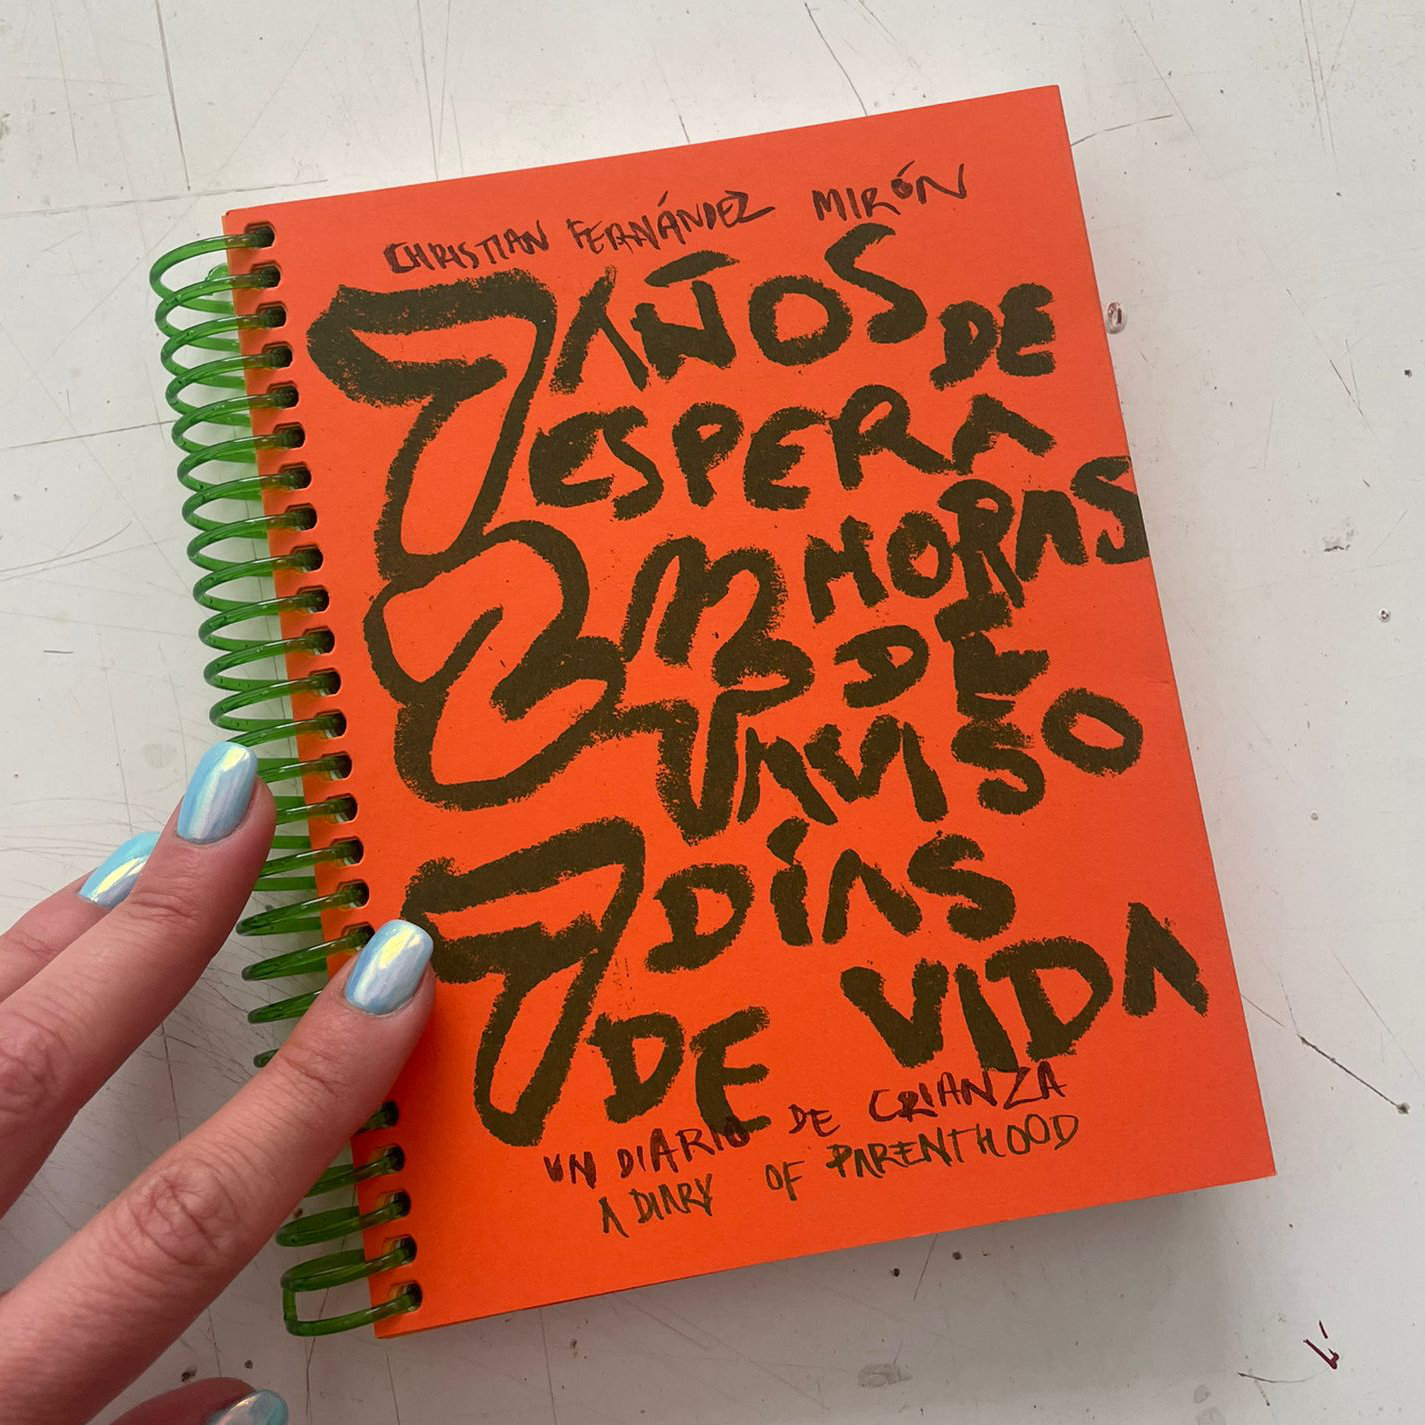 CHRISTIAN FERNÁNDEZ MIRÓN
7 AÑOS DE
ESPERA
24 HORAS
DE
AVISO
7 DÍAS
DE VIDA
UN DIARIO DE CRIANZA
A DIARY OF PARENTHOOD